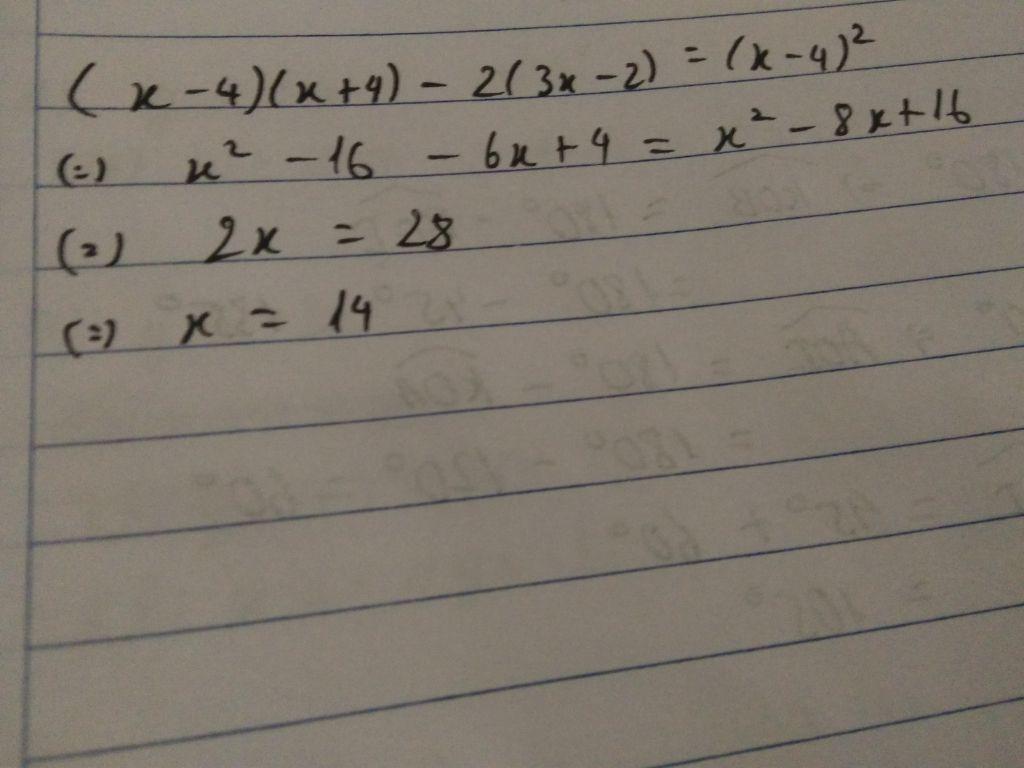 (x-4)(x+4) - 2(3x-2) = (x-4)²
(=) x² - 16 - 6x + 4 = x² - 8x + 16
(=) 2x = 28
(=) x = 14